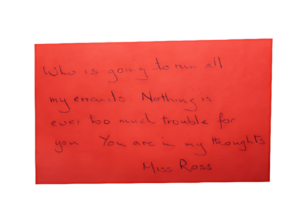 Who is going to run all
my errands. Nothing is
ever too much trouble for
you. You are in my thoughts
Miss Ross